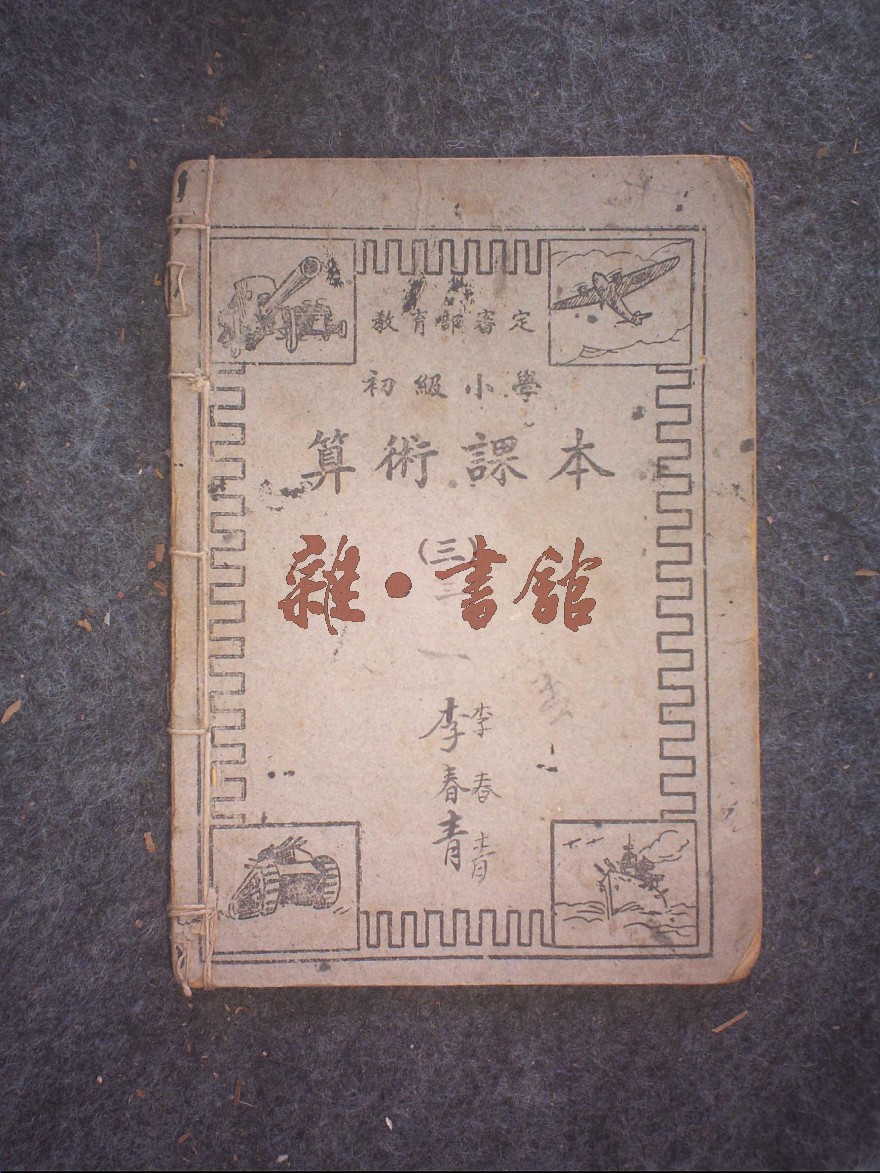 教育部審定
初級小學
算術課本
(三)
雜·書館
二
一
李春青
李春青